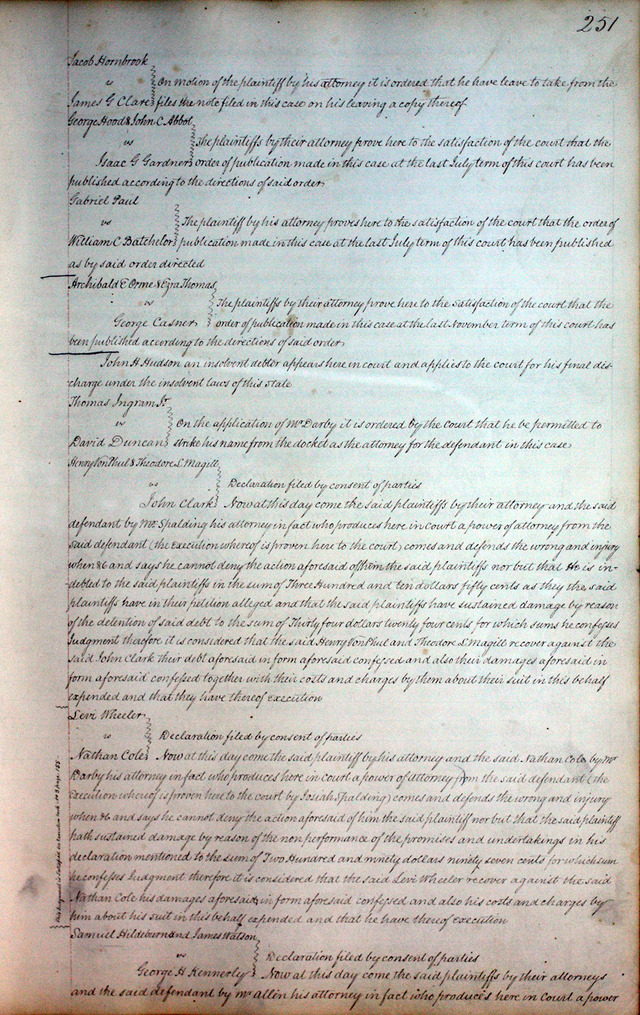 251
Jacob Hornbrook
vs On motion of the plaintiff by his attorney it is ordered that he have leave to take from the
James G Clare files the note filed in this case on his leaving a copy thereof
George Hood & John C Abbot
vs The plaintiffs by their attorney prove here to the satisfaction of the court that the
Isaac G Gardner order of publication made in this case at the last July term of this court has been
published according to the directions of said order
Gabriel Paul
vs The plaintiff by his attorney proves here to the satisfaction of the court that the order of
William C Batchelor publication made in this case at the last July term of this court has been published
as by said order directed
Archibald E Orme & Ezra Thomas
vs The plaintiffs by their attorney prove here to the satisfaction of the court that the
George Casner order of publication made in this case at the last November term of this court has
been published according to the directions of said order
John H Hudson an insolvent debtor appears here in court and applies to the court for his final dis-
charge under the insolvent laws of this state
Thomas Ingram Jr
vs On the application of Mr Darby it is ordered by the Court that he be permitted to
David Duncan strike his name from the docket as the attorney for the defendant in this case
Henry Von Phul & Theodore L Magill
vs Declaration filed by consent of parties
John Clark Now at this day come the said plaintiffs by their attorney and the said
defendant by Mr Spalding his attorney in fact who produces here in court a power of attorney from the
said defendant (the Execution whereof is proven here to the court) comes and defends the wrong and injury
when &c and says he cannot deny the action aforesaid of them the said plaintiffs nor but that He is in-
debted to the said plaintiffs in the sum of Three Hundred and ten dollars fifty cents as they the said
plaintiffs have in their petition alleged and that the said plaintiffs have sustained damage by reason
of the detention of said debt to the sum of Thirty four dollars twenty four cents for which sums he confesses
Judgment therefore it is considered that the said Henry Von Phul and Theodore L Magill recover against the
said John Clark their debt aforesaid in form aforesaid confessed and also their damages aforesaid in
form aforesaid confessed together with their costs and charges by them about their suit in this behalf
expended and that they have thereof execution
Levi Wheeler
vs Declaration filed by consent of parties
Nathan Cole Now at this day come the said plaintiff by his attorney and the said Nathan Cole by Mr
Darby his attorney in fact who produces here in Court a power of Attorney from the said defendant (the
Execution whereof is proven here to the court by Josiah Spalding) comes and defends the wrong and injury
when &c and says he cannot deny the action aforesaid of him the said plaintiff nor but that the said plaintiff
hath sustained damage by reason of the non performance of the promises and undertakings in his
declaration mentioned to the sum of Two Hundred and ninety dollars ninety seven cents for which sum
he confesses Judgment therefore it is considered that the said Levi Wheeler recover against the said
Nathan Cole his damages aforesaid in form aforesaid confessed and also his costs and charges by
him about his suit in this behalf expended and that he have thereof execution
Samuel Hildeburn and James Watson
vs Declaration filed by consent of parties
George H Kennerly Now at this day come the said plaintiffs by their attorneys
and the said defendant by Mr Allen his attorney in fact who produces here in Court a power